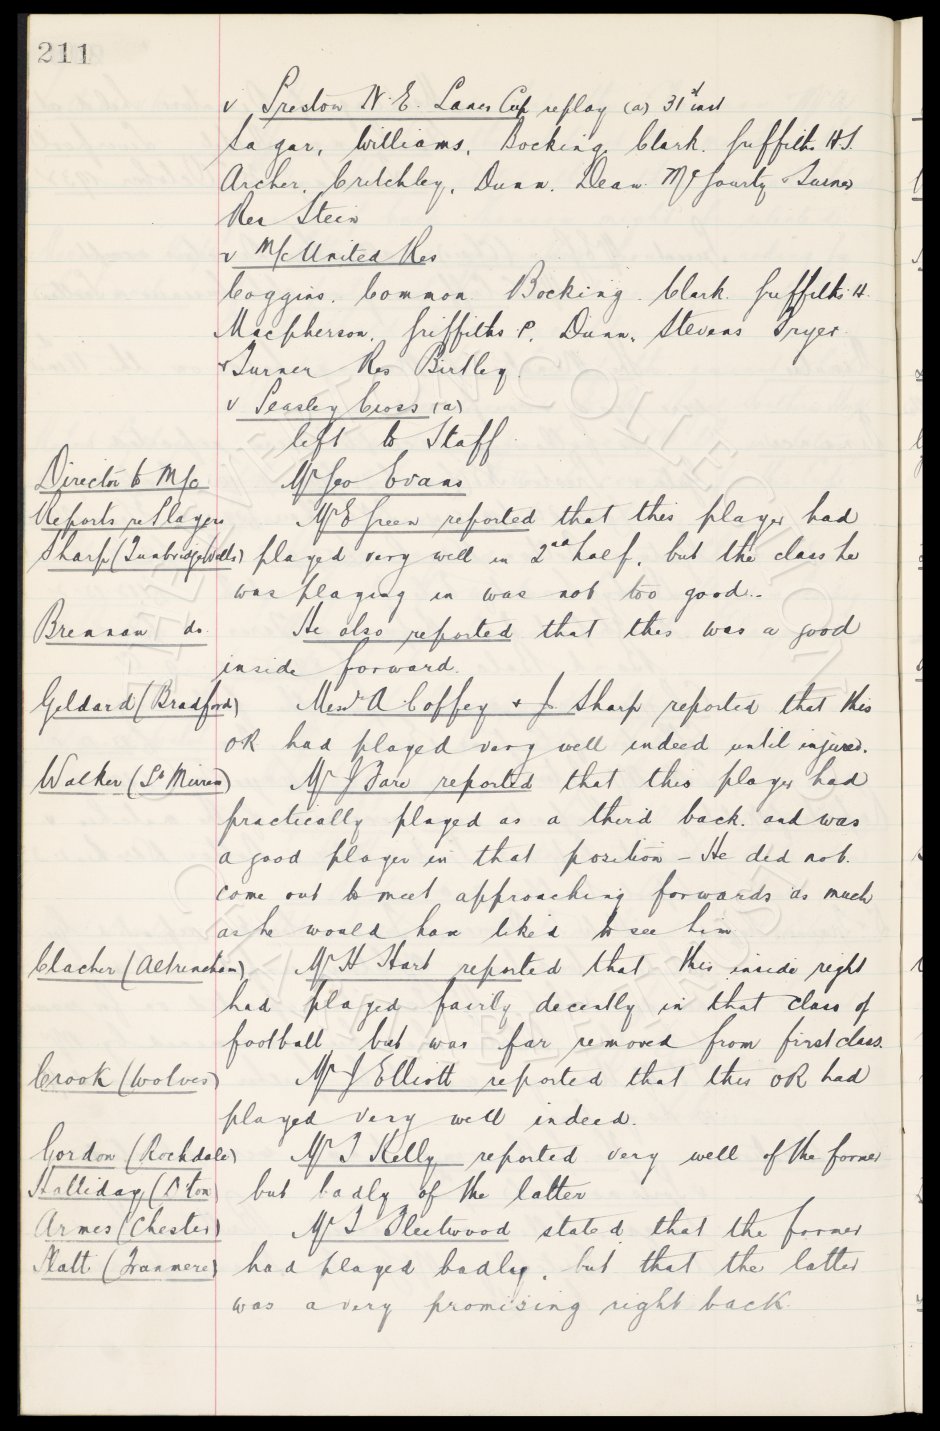 211
v Preston N.E. Lancs Cup replay (a) 31st inst
Sagar, Williams, Bocking, Clark. Griffiths H.S.
Archer, Critchley, Dunn, Dean McGourty & Turner
Res Stein
v M/c United Res
Coggins. Common. Bocking. Clark. Griffiths H.
Macpherson, Griffiths P, Dunn, Stevens Fryer
& Turner Res Birtley.
v Peasley Cross (a)
left to Staff
Director to M/c Mr Geo Evans
Reports re Players Mr E Green reported that this player had
Sharp (Tunbridge Wells) played very well in 2nd half, but the class he
was playing in was not too good..
Brennan do He also reported that this was a good
inside forward.
Geldard (Bradford) Messrs A Coffey & J Sharp reported that this
OR had played very well indeed until injured.
Walker (St Mirren) Mr J Fare reported that this player had
practically played as a third back. and was
a good player in that position - He did not.
come out to meet approaching forwards as much
as he would have liked to see him
Clacher (Altrincham) Mr H Hart reported that this inside right
had played fairly decently in that class of
football, but was far removed from first class.
Crook (Wolves) Mr J Elliott reported that this OR had
played very well indeed.
Gordon (Rochdale) Mr T Kelly reported very well of the former
Halliday (D'ton) but badly of the latter
Armes (Chester) Mr T Fleetwood stated that the former
Platt (Tranmere) had played badly, but that the latter
was a very promising right back.